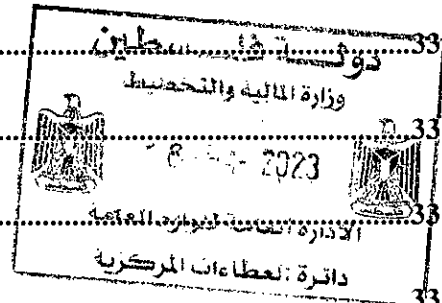 33
دولة فلسطين
وزارة المالية والتخطيط
33
2023
33
الادارة العامة للوازم العامة
دائرة العطاءات المركزية
33